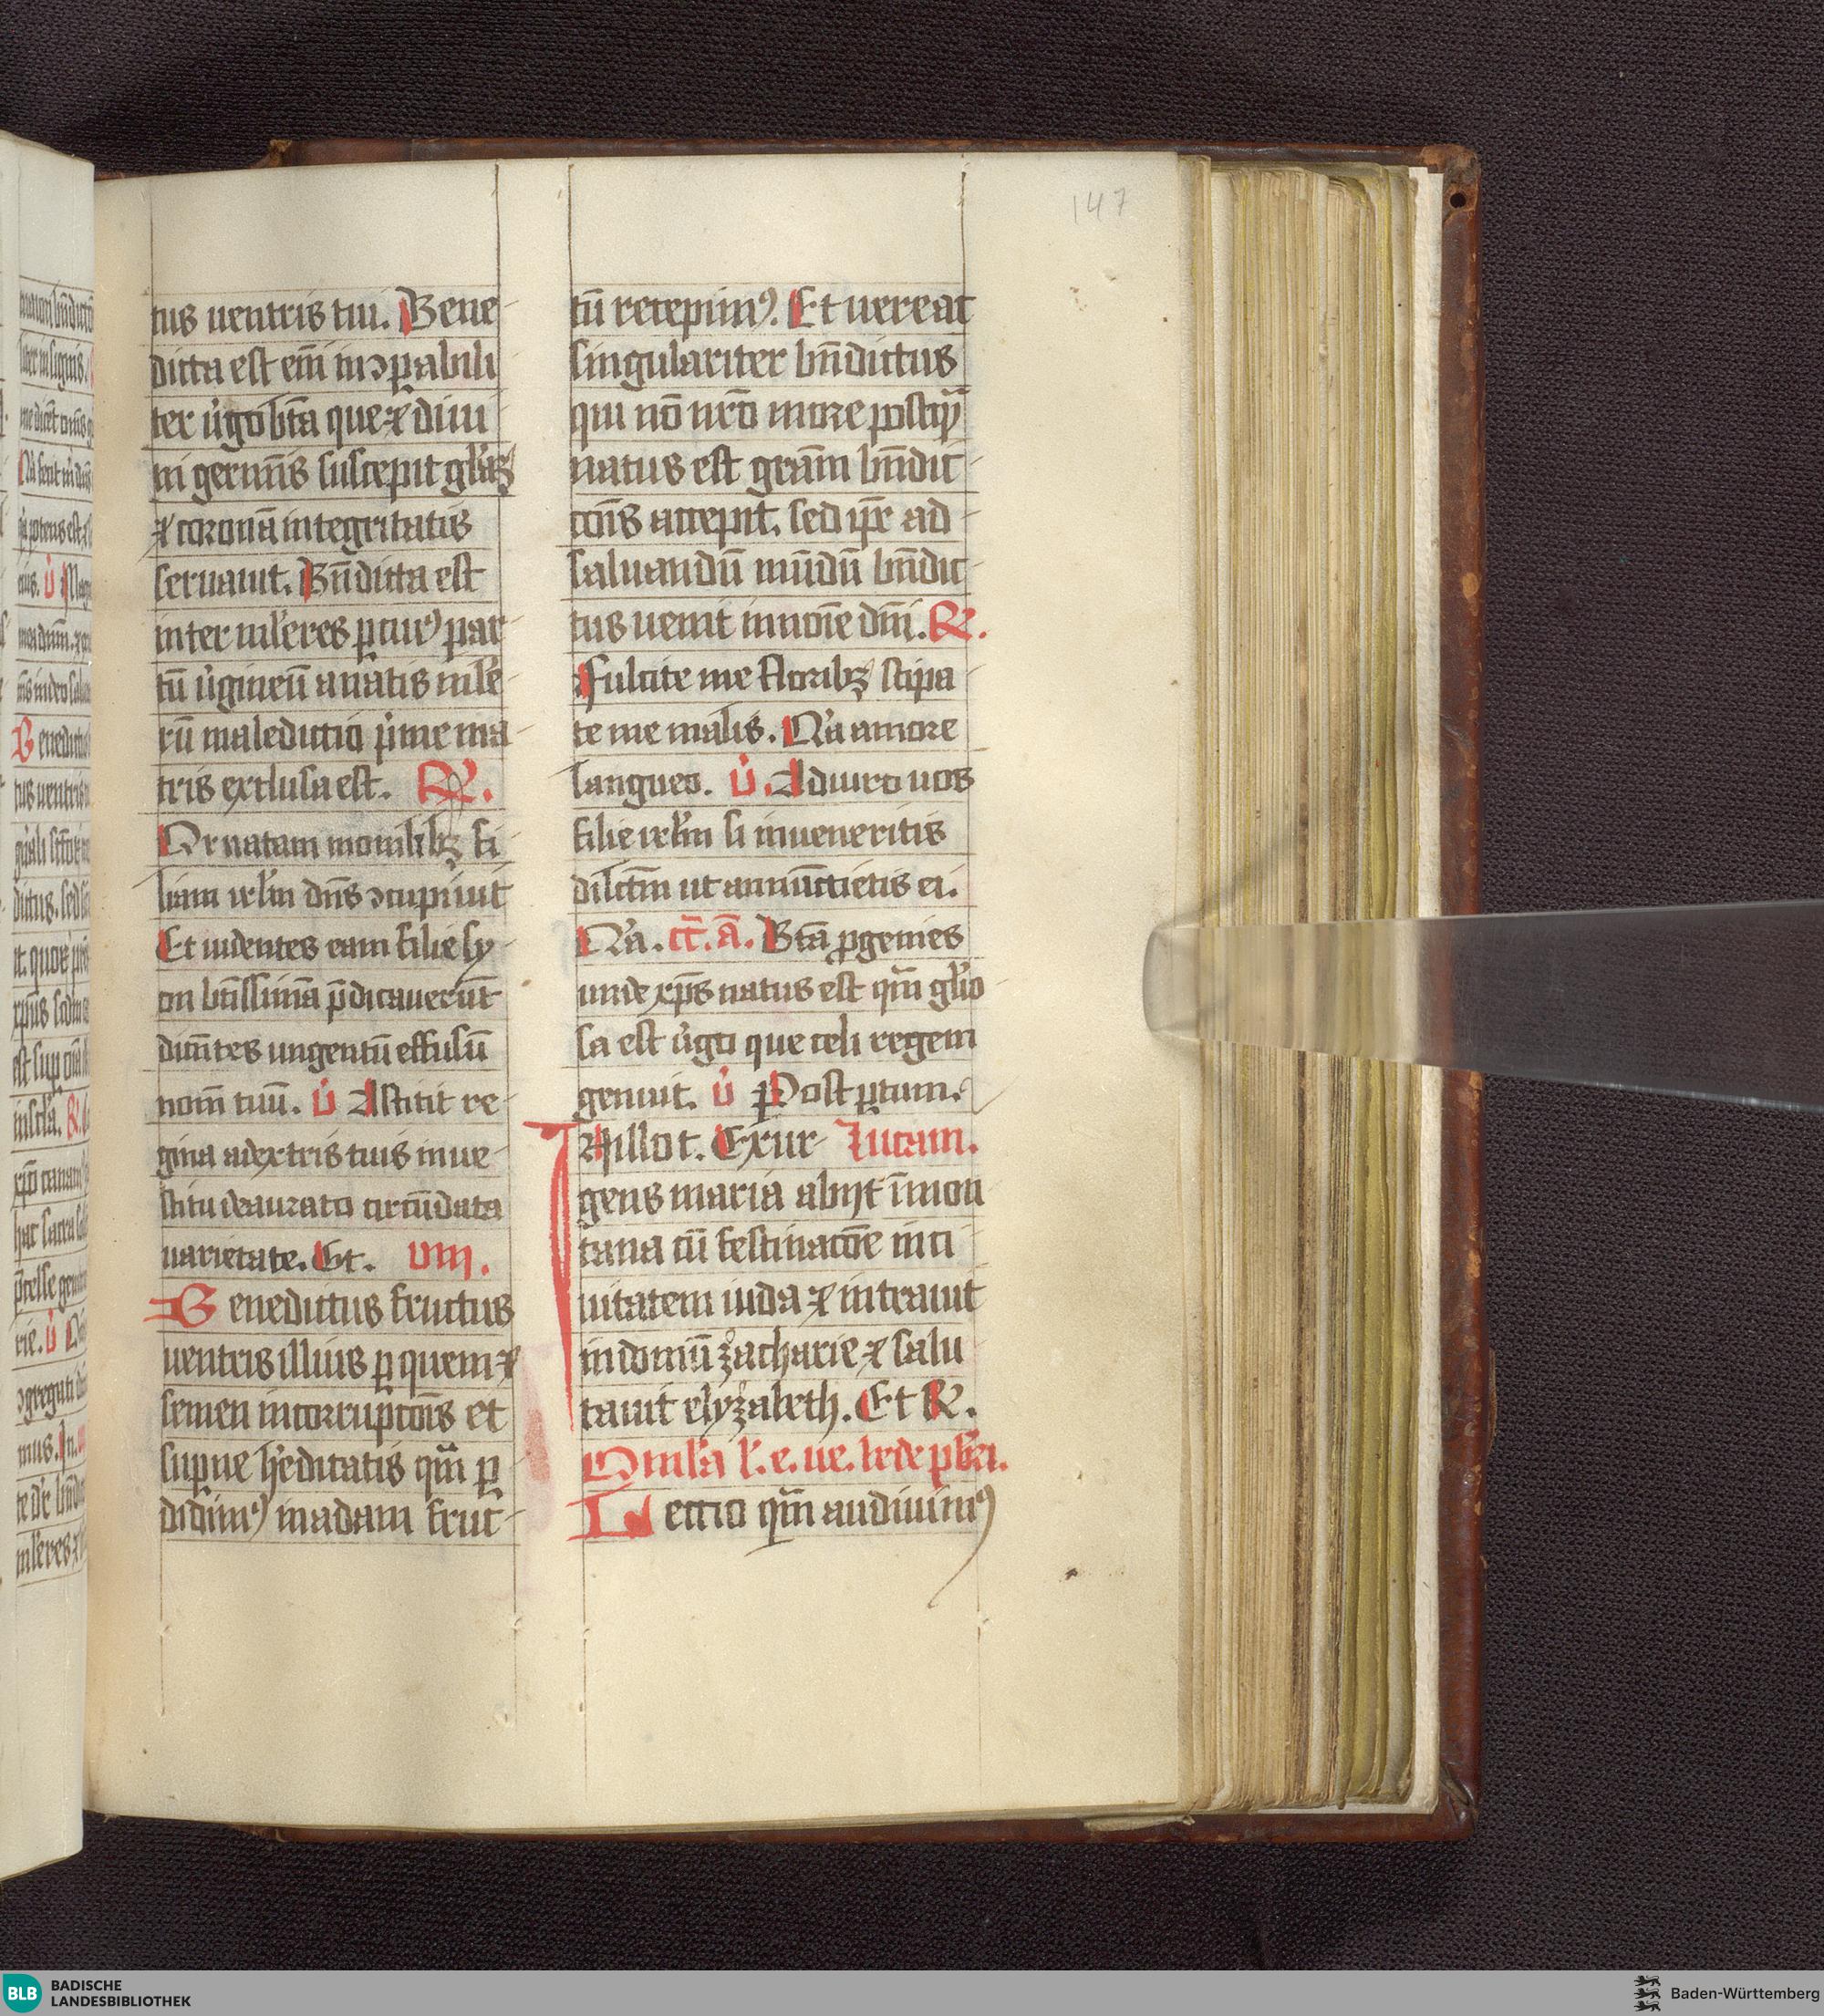 147
tus uentris tui. Bene
dicta est eni̅ inↄꝑabili
ter u̓go bt̅a que ⁊ diui
ni germi̅s suscepit gl̓iaꝫ
⁊ corona̅ integritatis
seruauit. Bn̅dicta est
inter ml̓ieres ꝑ cuiꝰ par
tu̅ u̓gineu̅ a natis ml̓ie
ru̅ maledictio p̓me ma
tris exclusa est. ℟.
Ornatam monilibꝫ fi
liam irl̓m dn̅s ↄcupiuit
Et uidentes eam filie sy
on bt̅issima̅ p̅dicaueru̅t
dice̅tes ungentu̅ effusu̅
nom̅ tuu̅. u̓ Astitit re
gina adextris tuis in ue
stitu deaurato circu̅data
uarietate. Et. VIII.
Benedictus fructus
uentris illius ꝑ quem ⁊
semen incorruptio̅is et
supne h̓editatis qm̅ ꝑ
didimꝰ in adam fruc
tu̅ recepimꝰ. Et uere at
singulariter bn̅dictus
qui no̅ nr̅o more postqꝫ̅
natus est gra̅m bn̅dic
co̅is accepit. sed ip̅e ad
saluandu̅ mu̅du̅ bn̅dic
tus uenit in no̅ie dn̅i. ℟.
Fulcite me floribꝫ stipa
te me malis. Q̓a amore
langueo. u̓. Adiuro uos
filie irl̓m si inueneritis
dilc̅m ut annu̅ctietis ei.
Q̓a. cc̅. a̅. Bt̅a ꝓgenies
unde xp̅s natus est qm̅ gl̓io
sa est u̓go que celi regem
genuit. u̓ Post ꝑtum.
In illo t. Exur Lucam.
gens maria abijt i̅ mon
tana cu̅ festinaco̅e in ci
uitatem iuda ⁊ intrauit
in domu̅ zacharie ⁊ salu
tauit elyzabeth. Et R.
Omil̓ia l̓. e. ue. bede pb̓ri.
Lectio qm̅ audiuimꝰ
BLB BADISCHE
LANDESBIBLIOTHEK
Baden-Württemberg